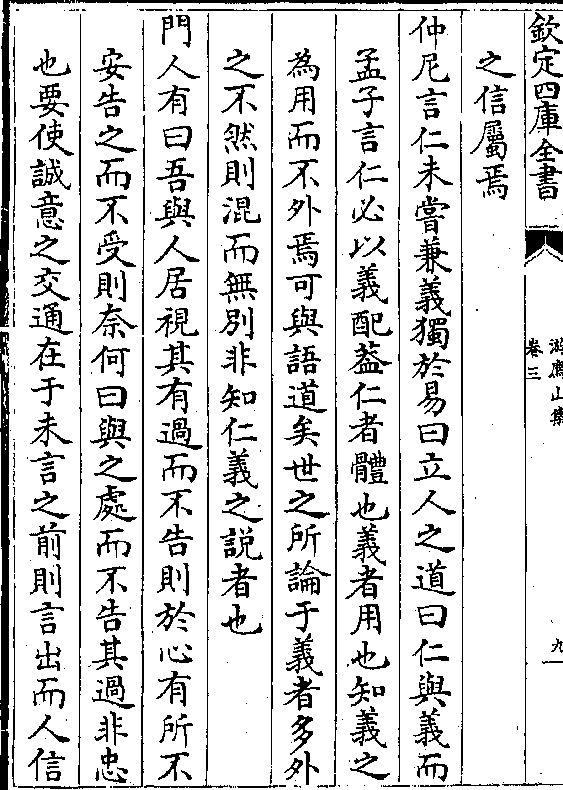 欽定四庫全書
游廌山集
卷三
九
之信屬焉
仲尼言仁未嘗兼義獨於易曰立人之道曰仁與義而
孟子言仁必以義配葢仁者體也義者用也知義之
為用而不外焉可與語道矣世之所論于義者多外
之不然則混而無別非知仁義之説者也
門人有曰吾與人居視其有過而不告則於心有所不
安告之而不受則奈何曰與之處而不告其過非忠
也要使誠意之交通在于未言之前則言出而人信